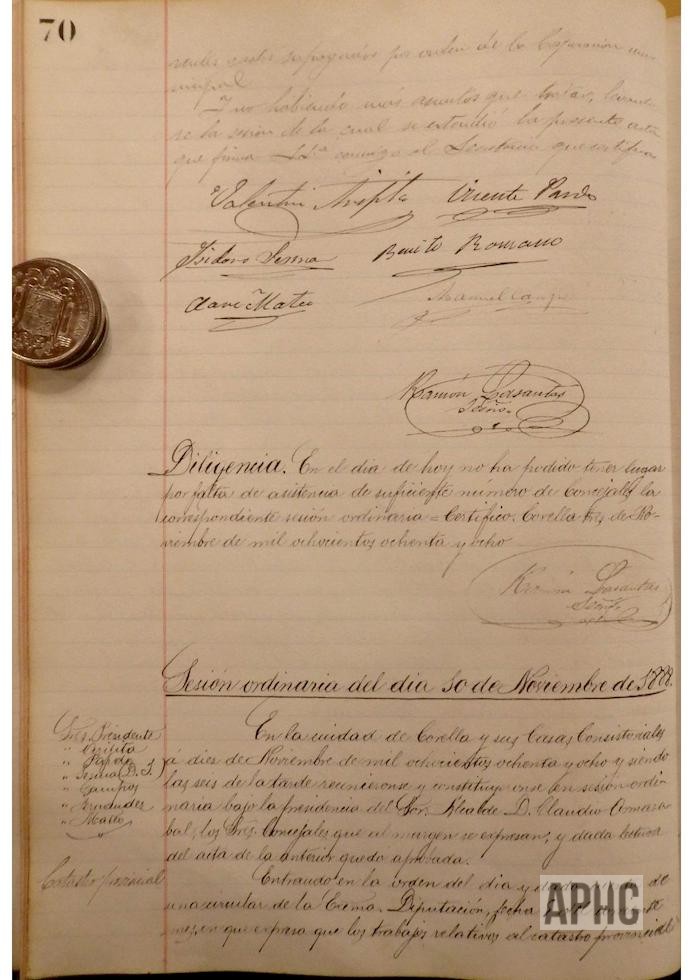 70
gastos sufragados por orden de la Corporación mu-
nicipal
Y no habiendo más asuntos que tratar, levantó-
se la sesión de la cual se extendió la presente acta
que firma S.Sª conmigo el Secretario que certifico
Valentin Arispta Vicente Pardo
Isidoro Sesma Benito Romano
Clave Mateo
Manuel
Ramón Lasantas
Secrio.
Diligencia. En el dia de hoy no ha podido tener lugar
por falta de asistencia de suficiente número de Concejales la
correspondiente sesión ordinaria = Certifico. Corella tres de No-
viembre de mil ochocientos ochenta y ocho
Ramón Lasantas
Sesión ordinaria del dia 10 de Noviembre de 1888.
Sres. Presidente
" Pardo
" Sesma (D. I.)
" Campos
" Mateo
En la ciudad de Corella y sus Casas Consistoriales
á dies de Noviembre de mil ochocientos ochenta y ocho y siendo
las seis de la tarde reunieronse y constituyeronse en sesión ordi-
naria bajo la presidencia del Sor. Alcalde D. Claudio
los Sres. Concejales que al margen se expresan, y dada lectura
del acta de la anterior quedó aprobada.
Catastro provincial
Entrando en la orden del dia y de
una circular de la Exma. Diputación, fecha
mes, en que expresa que los trabajos relativos al catastro provincial
APHC